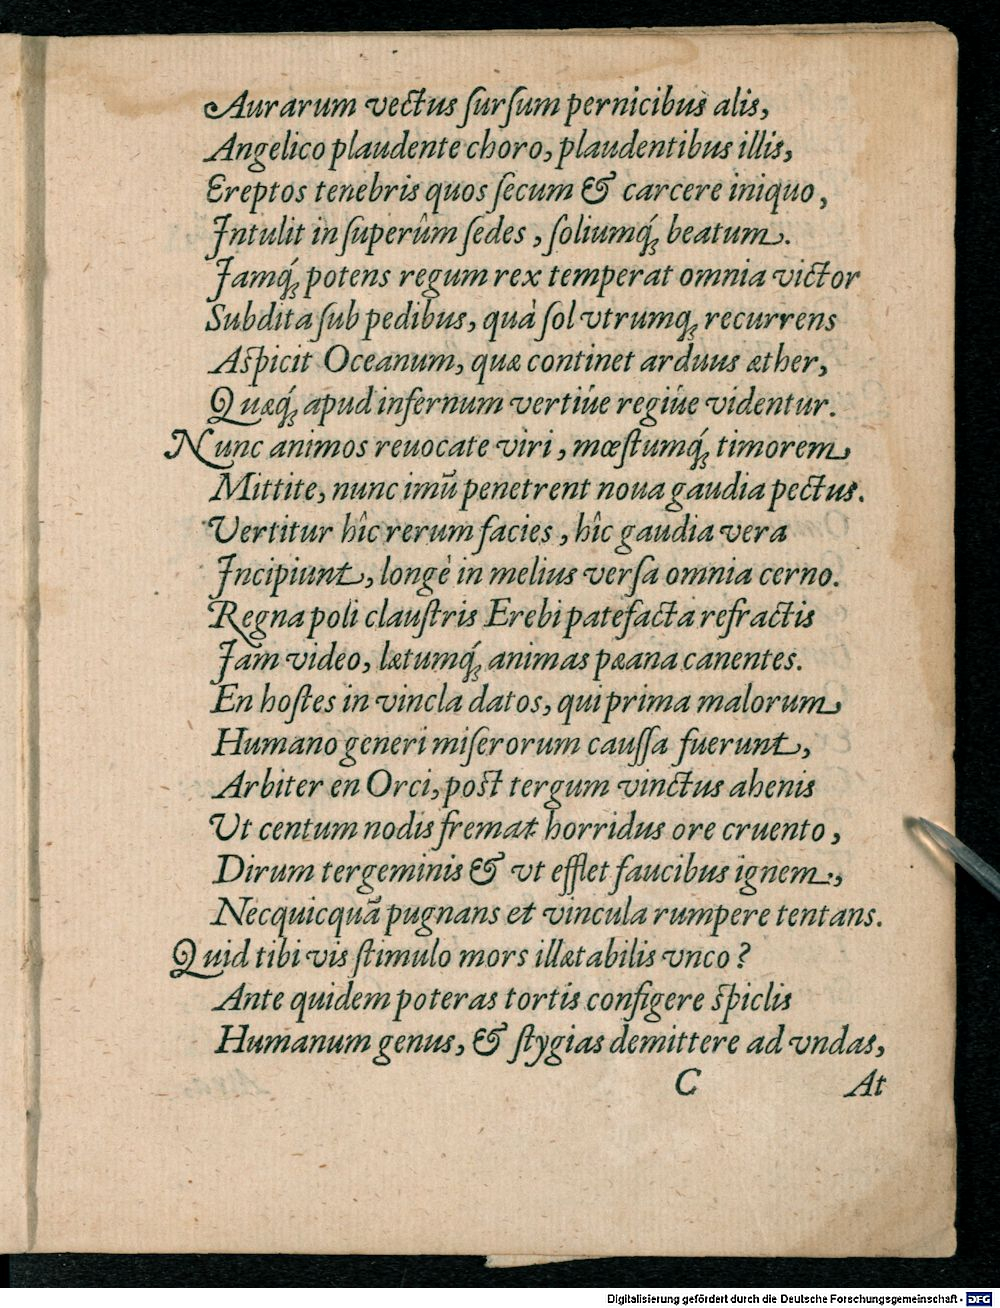 Aurarum vectus ſurſum pernicibus alis,
Angelico plaudente choro, plaudentibus illis,
Ereptos tenebris quos ſecum & carcere iniquo,
Intulit in ſuperûm ſedes, ſoliumq́ꝫ beatum.
Iamq́ꝫ potens regum rex temperat omnia victor
Subdita ſub pedibus, quà ſol vtrumqꝫ recurrens
Aſpicit Oceanum, quæ continet arduus æther,
Quæq́ꝫ apud infernum vertiúe regiúe videntur.
Nunc animos reuocate viri, mœſtumq́ꝫ timorem
Mittite, nunc imū penetrent noua gaudia pectus.
Vertitur hîc rerum facies, hîc gaudia vera
Incipiunt, longè in melius verſa omnia cerno.
Regna poli clauſtris Erebi patefacta refractis
Iam video, lætumq́ꝫ animas pæana canentes.
En hoſtes in vincla datos, qui prima malorum
Humano generi miſerorum cauſſa fuerunt,
Arbiter en Orci, poſt tergum vinctus ahenis
Vt centum nodis fremat horridus ore cruento,
Dirum tergeminis & vt efflet faucibus ignem,
Necquicquā pugnans et vincula rumpere tentans.
Quid tibi vis ſtimulo mors illætabilis vnco?
Ante quidem poteras tortis configere ſpiclis
Humanum genus, & ſtygias demittere ad vndas,
C At
Digitalisierung gefördert durch die Deutsche Forschungsgemeinschaft - DFG